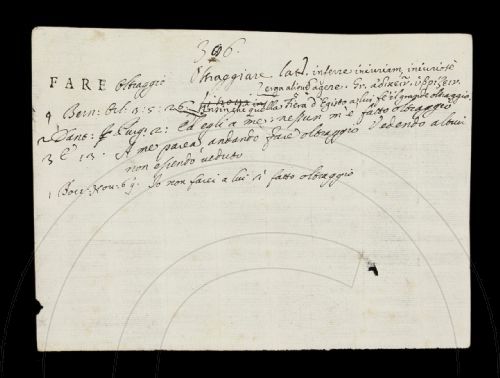 306.
FARE Oltraggio Oltraggiare lat. inferre iniuriam, iniuriosè
erga aliquē agere. Gr. ἀδικεῖν. ὑβρίζειν.
4 Bern: Orl. 1: 5: 26: quella fiera d'Egitto a lui fè sì grande oltraggio.
2 Dant: Purg: 2: Ed egli a me: nessun m'è fatto oltraggio
3 E 13. A me parea andando fare oltraggio Vedendo altrui
non essendo veduto
1 Bocc: Nov: 69. Io non farei a lui sì fatto oltraggio